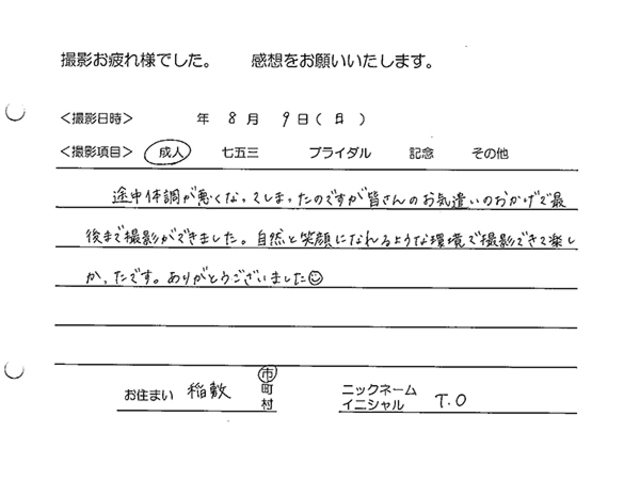 撮影お疲れ様でした。 感想をお願いいたします。
<撮影日時> 年 8月 9日(日)
<撮影項目> 成人 七五三 ブライダル 記念 その他
途中体調が悪くなってしまったのですが皆さんのお気遣いのおかげで最
後まで撮影ができました。自然と笑顔になれるような環境で撮影できて楽し
かったです。ありがとうございました☺
お住まい 稲敷 市町村 ニックネーム イニシャル T.O